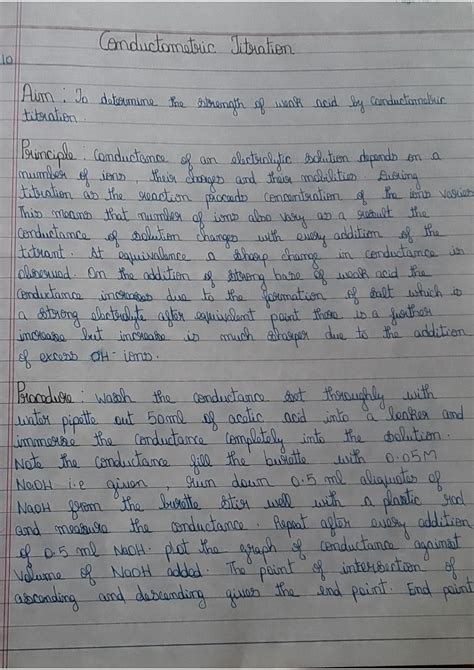 Conductometric Titration
10
Aim : To determine the strength of weak acid by conductometric
titration.
Principle : Conductance of an electrolytic solution depends on a
number of ions, their charges and their mobilities. During
titration as the reaction proceeds concentration of the ions varies
This means that number of ions also vary as a result the
conductance of solution changes with every addition of the
titrant. At equivalence a sharp change in conductance is
observed. On the addition of strong base of weak acid the
conductance increases due to the formation of salt which is
a strong electrolyte after equivalent point there is a further
increase but increase is much sharper due to the addition
of excess OH- ions.
Procedure : Wash the conductance set thoroughly with
water pipette out 50ml of acetic acid into a beaker and
immerse the conductance completely into the solution.
Note the conductance fill the burette with 0.05M
NaOH i.e given, run down 0.5 ml aliquotes of
NaOH from the burette stir well with a plastic rod
and measure the conductance. Repeat after every addition
of 0.5 ml NaOH. plot the graph of conductance against
volume of NaOH added. The point of intersection of
ascending and descending gives the end point. End point